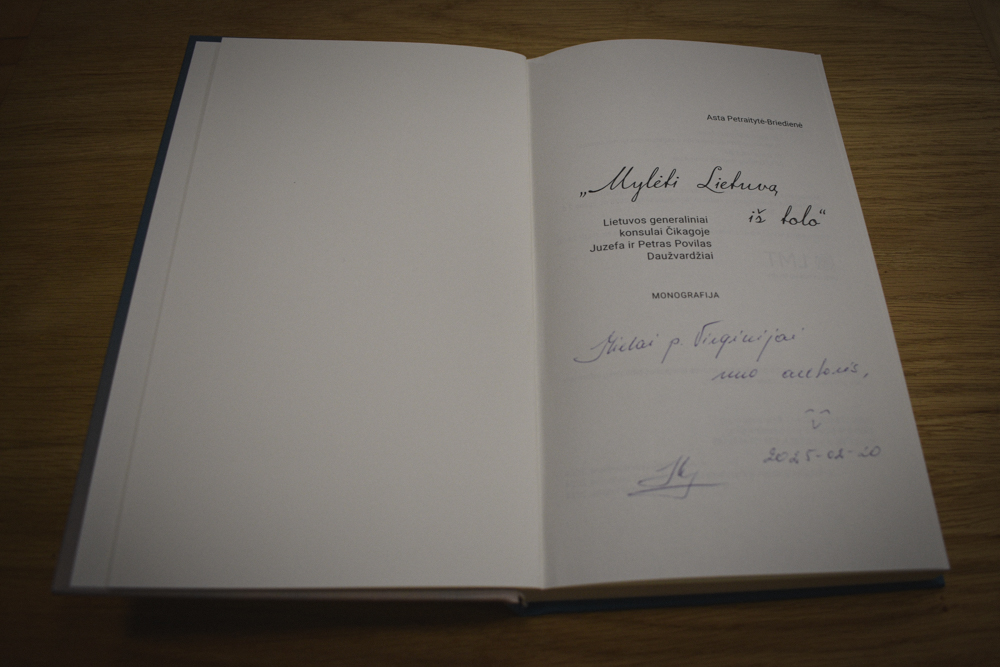 Asta Petraitytė-Briedienė
„Mylėti Lietuvą
iš tolo“
Lietuvos generaliniai
konsulai Čikagoje
Juzefa ir Petras Povilas
Daužvardžiai
MONOGRAFIJA
Mielai p. Virginijai
nuo autorės,
2025-02-20